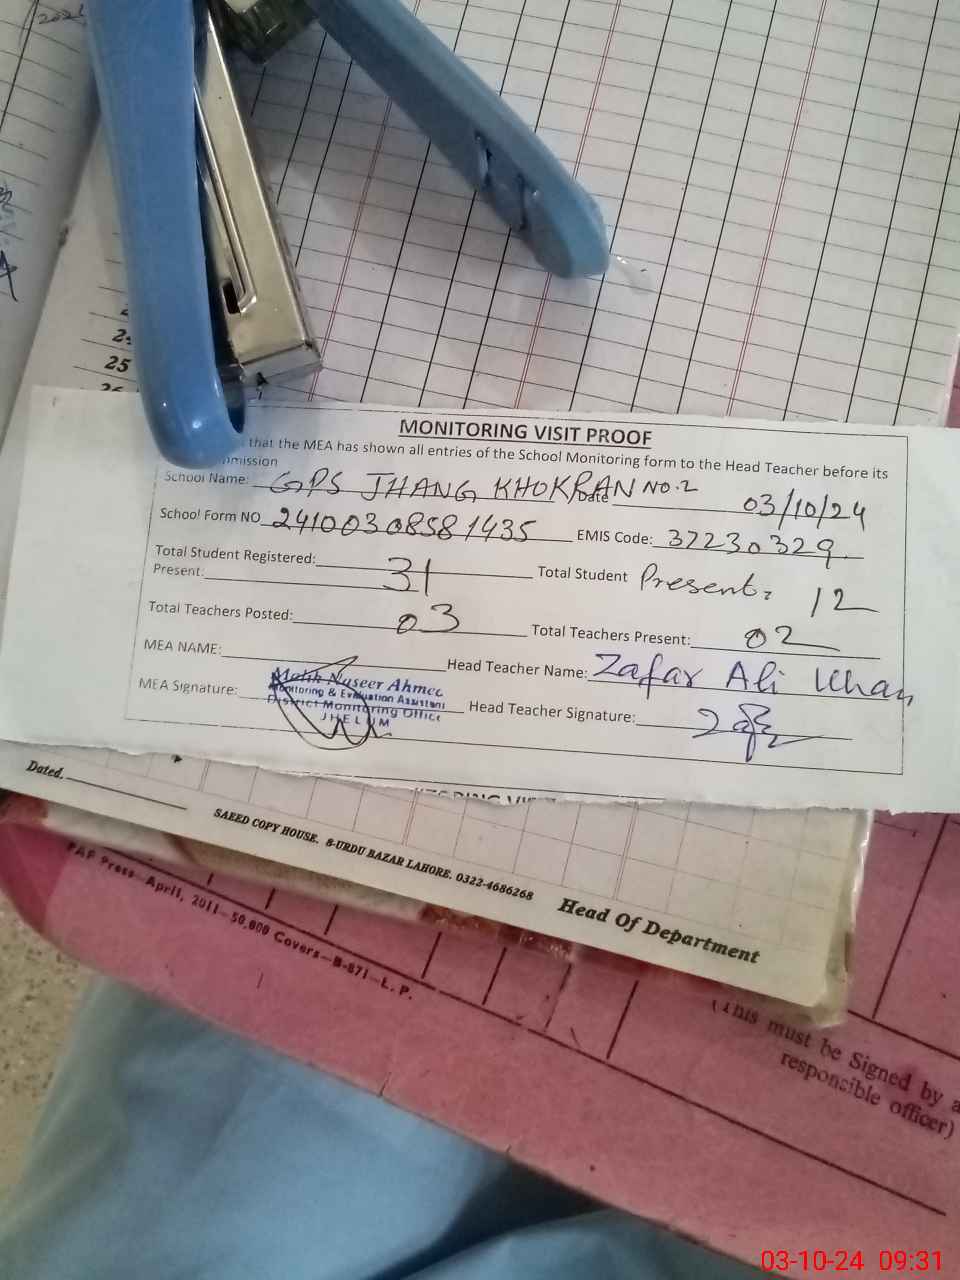 2
25
MONITORING VISIT PROOF
that the MEA has shown all entries of the School Monitoring form to the Head Teacher before its
mission
School Name: GPS JHANG KHOKRAN NO.2 Date 03/10/24
School Form NO 24100308581435 EMIS Code: 37230329
Total Student Registered: 31 Total Student Present: 12
Present:
Total Teachers Posted: 03 Total Teachers Present: 02
MEA NAME: Head Teacher Name: Zafar Ali Khan
MEA Signature: Malik Naseer Ahmed
Monitoring & Evaluation Assistant
District Monitoring Office
JHELUM
Head Teacher Signature:
Dated.
SAEED COPY HOUSE. 8-URDU BAZAR LAHORE. 0322-4686268
Head Of Department
PAF Press—April, 2011—50,000 Covers—B-871—L. P.
(This must be Signed by a
responsible officer)
03-10-24 09:31